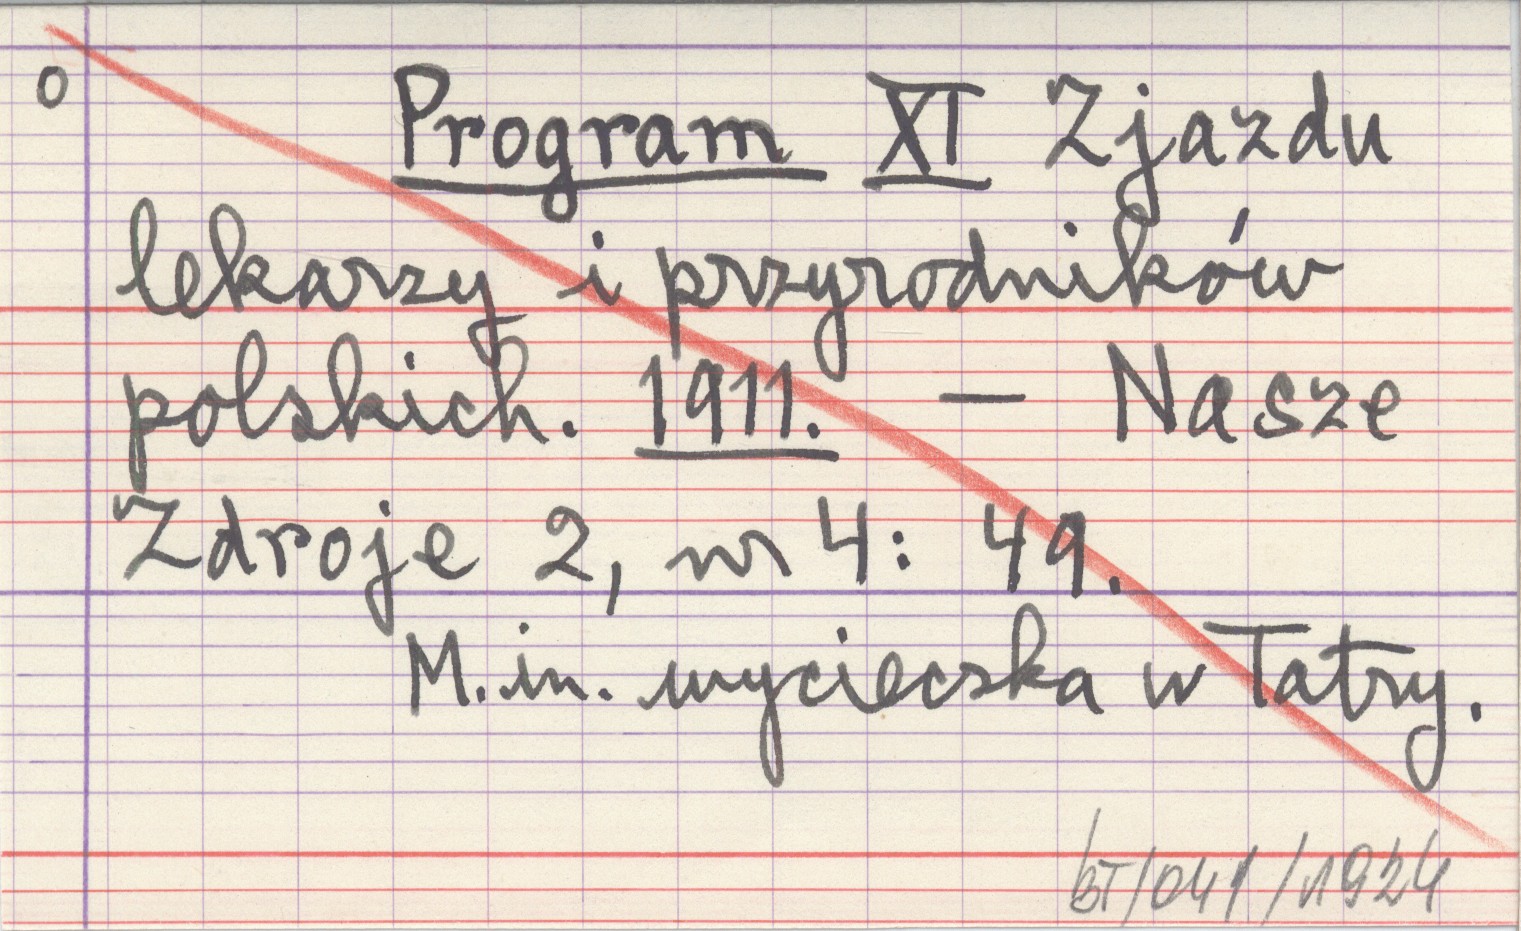 o
Program XI Zjazdu
lekarzy i przyrodników
polskich. 1911. — Nasze
Zdroje 2, nr 4: 49.
M. in. wycieczka w Tatry.
bT/041/1924